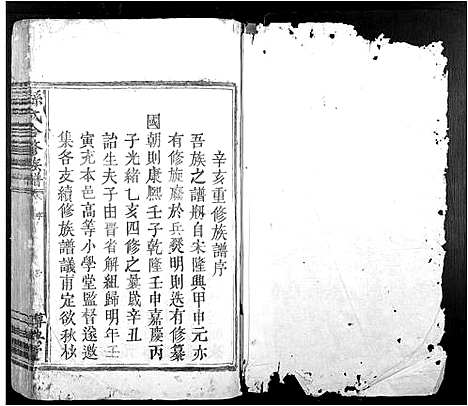 辛亥重修族譜序
吾族之譜剙自宋隆興甲申元亦
有修旋廢於兵燹明則迭有修纂
國朝則康熙壬子乾隆壬申嘉慶丙
子光緒乙亥四修之曩歲辛丑
詒生夫子由晋省解組歸明年壬
寅充本邑高等小學堂監督遂邀
集各支續修族譜議甫定欲秋枚
孫氏合修族譜